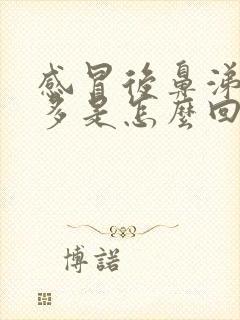 感冒後鼻涕
多是怎麼回
博諾